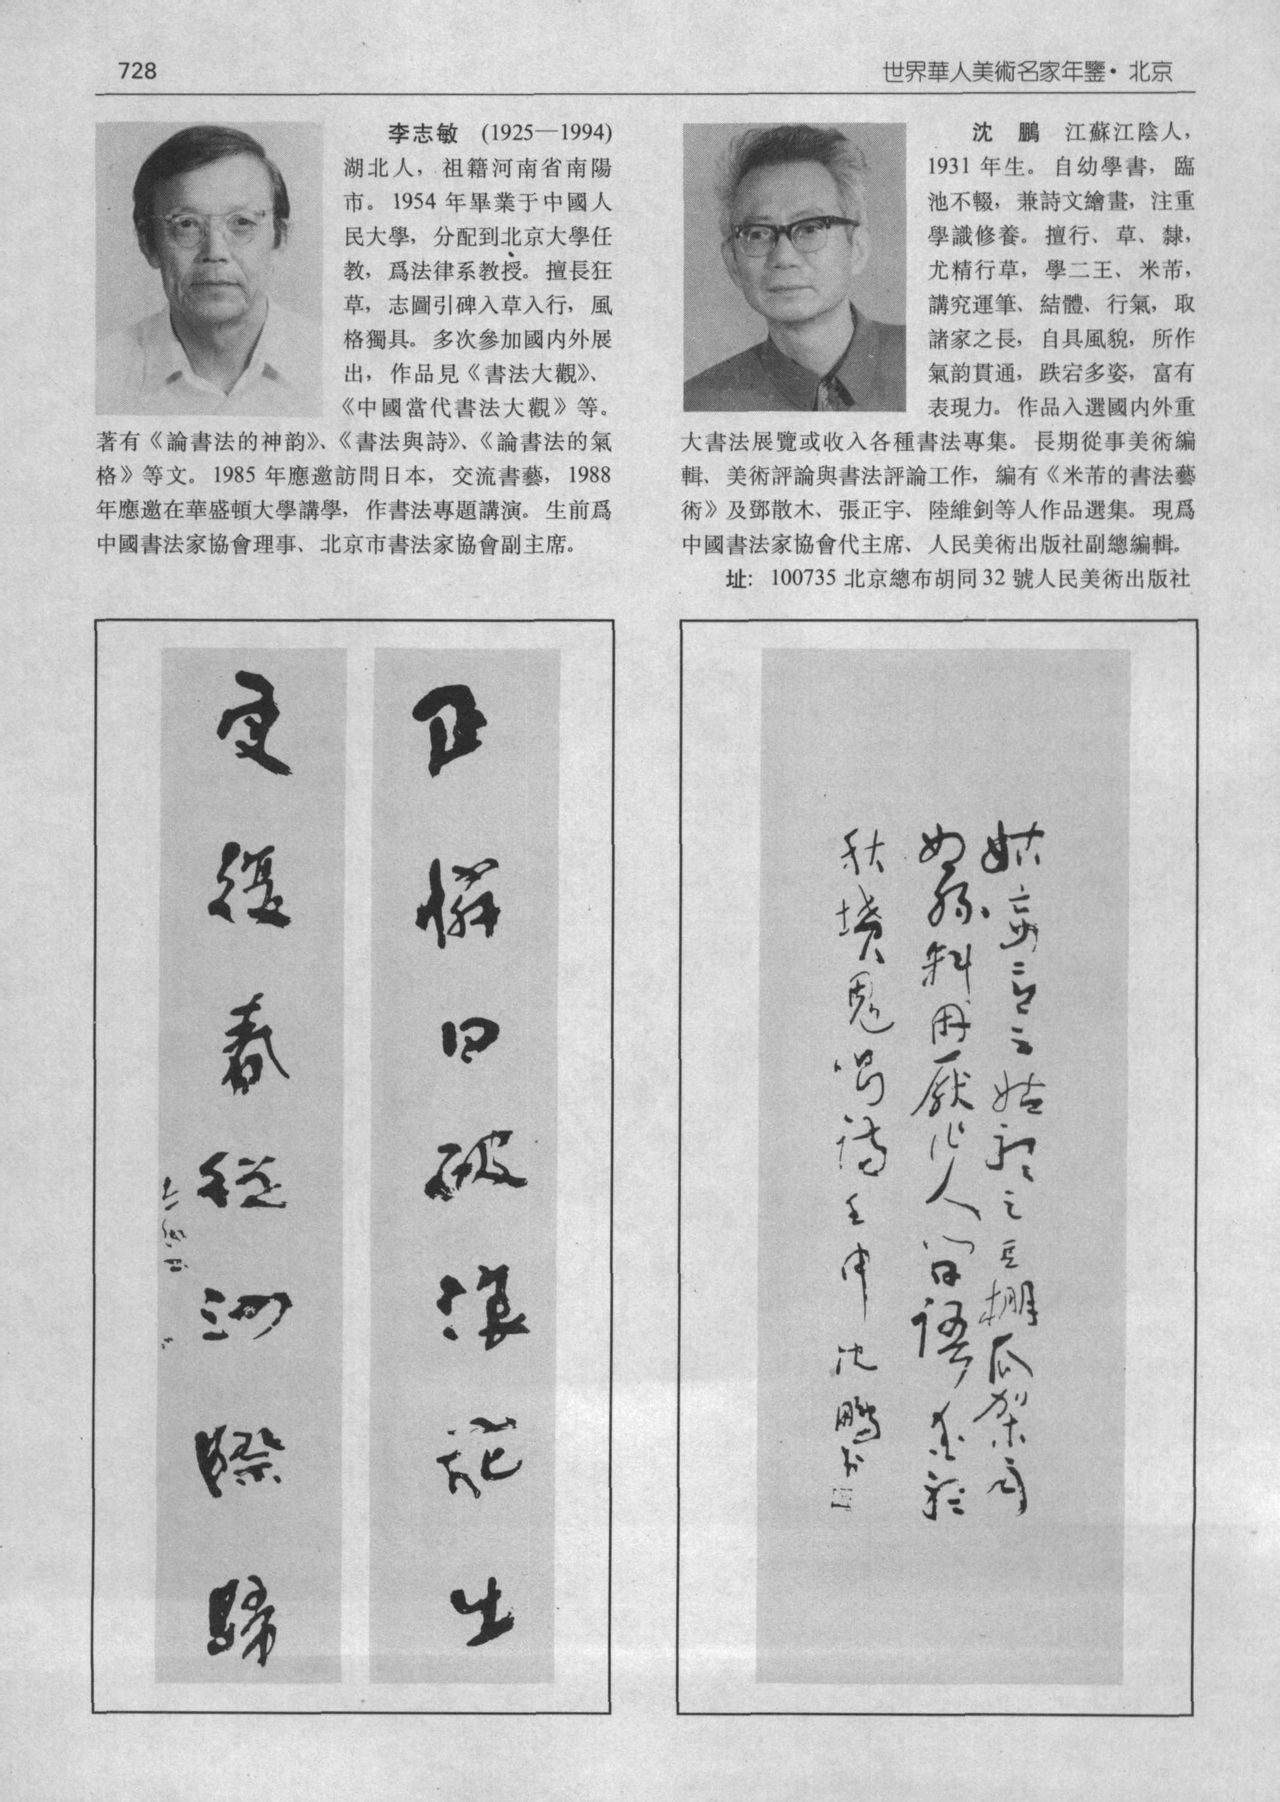 728
世界華人美術名家年鑒·北京
李志敏 (1925—1994)
湖北人，祖籍河南省南陽
市。1954 年畢業于中國人
民大學，分配到北京大學任
教，爲法律系教授。擅長狂
草，志圖引碑入草入行，風
格獨具。多次參加國内外展
出，作品見《書法大觀》、
《中國當代書法大觀》等。
著有《論書法的神韵》、《書法與詩》、《論書法的氣
格》等文。1985 年應邀訪問日本，交流書藝，1988
年應邀在華盛頓大學講學，作書法專題講演。生前爲
中國書法家協會理事、北京市書法家協會副主席。
沈　鵬　江蘇江陰人，
1931 年生。自幼學書，臨
池不輟，兼詩文繪畫，注重
學識修養。擅行、草、隸，
尤精行草，學二王、米芾，
講究運筆、結體、行氣，取
諸家之長，自具風貌，所作
氣韵貫通，跌宕多姿，富有
表現力。作品入選國内外重
大書法展覽或收入各種書法專集。長期從事美術編
輯、美術評論與書法評論工作，編有《米芾的書法藝
術》及鄧散木、張正宇、陸維釗等人作品選集。現爲
中國書法家協會代主席、人民美術出版社副總編輯。
址：100735 北京總布胡同 32 號人民美術出版社
正憐日破浪花出
更復春從沙際歸
姑妄言之姑聽之豆棚瓜架雨
如絲料應厭作人間語愛聽
秋墳鬼唱詩壬申沈鵬書